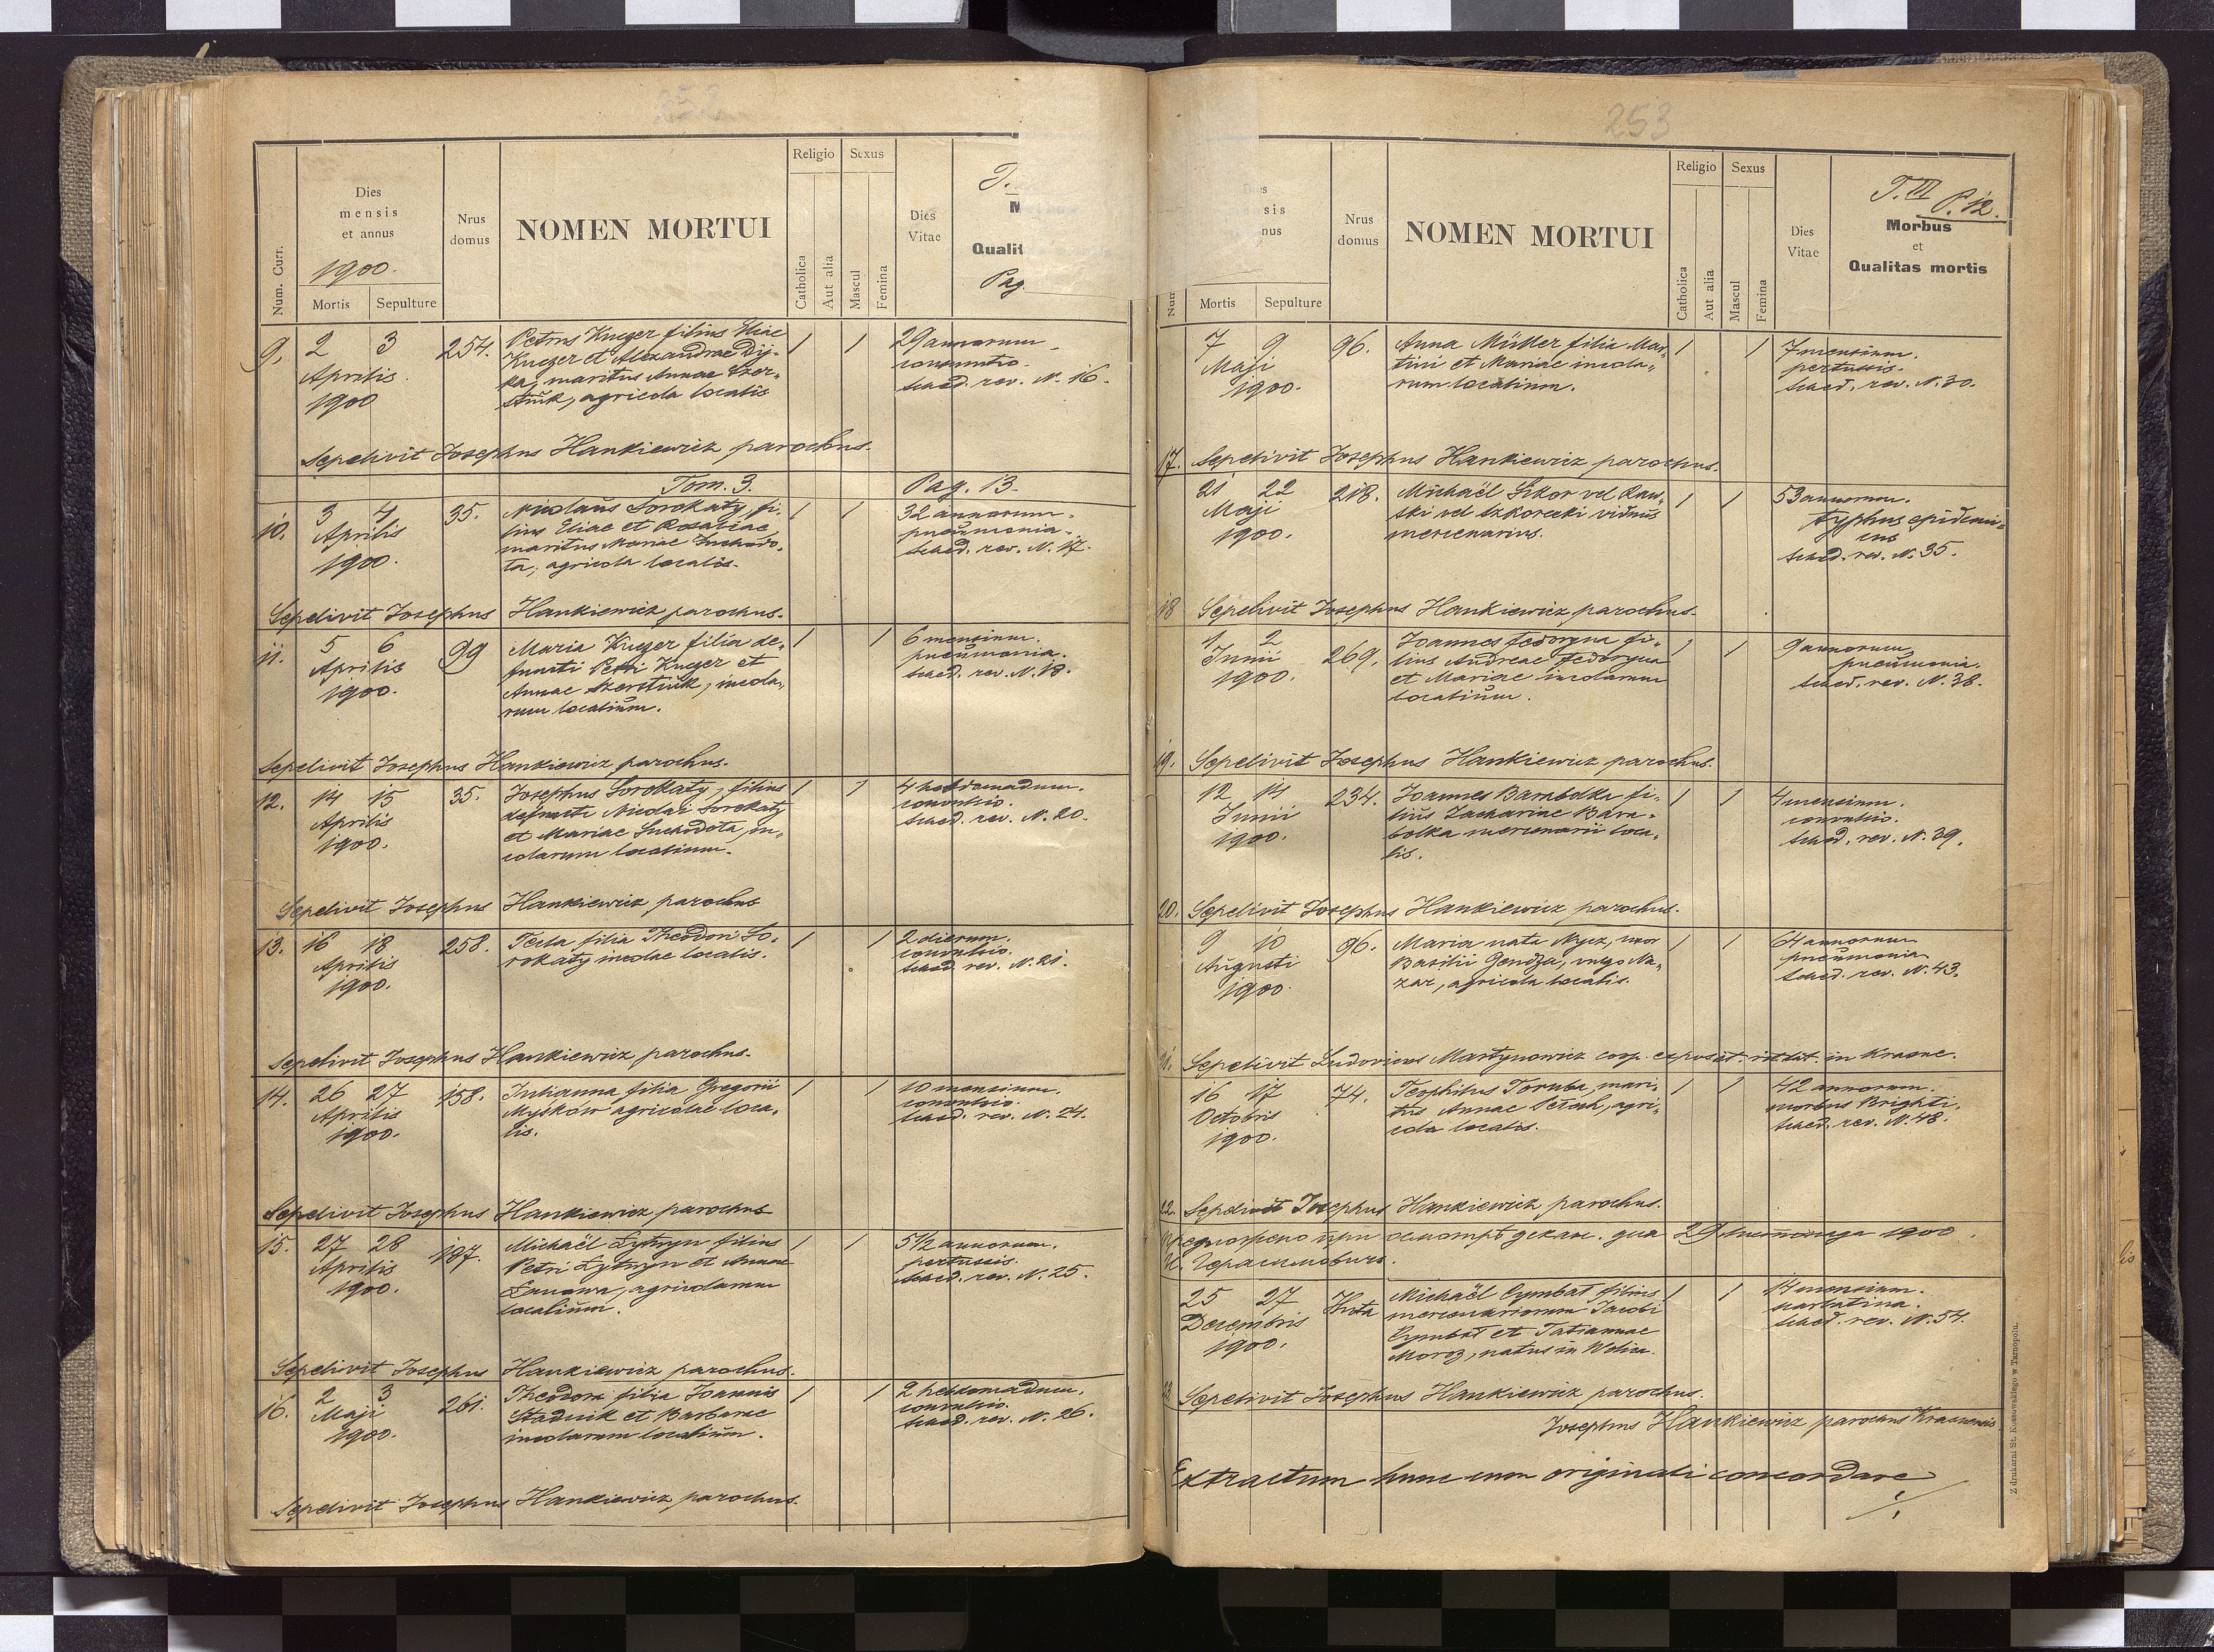 252
Religio Sexus
Dies
mensis
et annus
1900.
Nrus
domus
NOMEN MORTUI
Dies
Vitae
Qualit
Pag.
Num. Curr.
Mortis Sepulture
Catholica
Aut alia
Mascul
Femina
9. 2 3 254. Petrus Kuczer filius Eliae 1 1 29 annorum
Aprilis Kuczer et Alexandrae Dy-
1900 ka, maritus Annae Szer-
stiuk, agricola localis
sched. rev. N. 16.
Sepelivit Josephus Hankiewicz parochus.
Tom. 3. Pag. 13.
10. 3 4 35. Nicolaus Sorokaty, fi- 1 1 32 annorum.
Aprilis lius Eliae et Rosaliae, pneumonia.
1900. maritus Mariae Suchodo- sched. rev. N. 17.
ta, agricola localis.
Sepelivit Josephus Hankiewicz parochus.
11. 5 6 99 Maria Kuczer filia de- 1 1 6 mensium.
Aprilis functi Petri Kuczer et pneumonia.
1900. Annae Szerstiuk, incola- sched. rev. N. 18.
rum localium.
Sepelivit Josephus Hankiewicz parochus.
12. 14 15 35. Josephus Sorokaty, filius 1 1 4 hebdomadum.
Aprilis defuncti Nicolai Sorokaty convulsio.
1900. et Mariae Suchodota, in- sched. rev. N. 20.
colarum localium.
Sepelivit Josephus Hankiewicz parochus
13. 16 18 258. Tecla filia Theodori So- 1 1 2 dierum.
Aprilis rokaty incolae localis. convulsio.
1900. sched. rev. N. 21.
Sepelivit Josephus Hankiewicz parochus.
14. 26 27 158. Julianna filia Gregorii 1 1 10 mensium.
Aprilis Myśków agricolae loca- convulsio.
1900. lis. sched. rev. N. 24.
Sepelivit Josephus Hankiewicz parochus
15. 27 28 187. Michaël Lytwyn filius 1 1 5 1/2 annorum.
Aprilis Petri Lytwyn et Annae pertussis.
1900. agricolarum sched. rev. N. 25.
localium.
Sepelivit Josephus Hankiewicz parochus.
16. 2 3 261. Theodora filia Joannis 1 1 2 hebdomadum.
Maji Stadnik et Barbarae convulsio.
1900. incolarum localium. sched. rev. N. 26.
Sepelivit Josephus Hankiewicz parochus.
253
Religio Sexus
Nrus
domus
NOMEN MORTUI
Dies
Vitae
T. III P. 12.
Morbus
et
Qualitas mortis
Mortis Sepulture
Catholica
Aut alia
Mascul
Femina
7 9 96. Anna Müller filia Mar- 1 1 7 mensium.
Maji tini et Mariae incola- pertussis.
1900. rum localium. sched. rev. N. 30.
17. Sepelivit Josephus Hankiewicz parochus.
21 22 218. Michaël Sikor vel Raw- 1 1 53 annorum.
Maji ski vel Szkorecki viduus typhus epidemi-
1900. mercenarius. cus
sched. rev. N. 35.
18 Sepelivit Josephus Hankiewicz parochus.
1 2 269. Joannes Fedoryna fi- 1 1 9 annorum
Junii lius Andreae Fedoryna pneumonia.
1900. et Mariae incolarum sched. rev. N. 38.
localium.
19. Sepelivit Josephus Hankiewicz parochus.
12 14 234. Joannes Barabolka fi- 1 1 4 mensium.
Junii lius Zachariae Bara- convulsio.
1900. bolka mercenarii loca- sched. rev. N. 39.
lis.
20. Sepelivit Josephus Hankiewicz parochus.
9 10 96. Maria nata Nycz, uxor 1 1 64 annorum
Augusti Basilii Gendza, vulgo Na- pneumonia
1900. zar, agricola localis. sched. rev. N. 43.
21. Sepelivit Ludovicus Martynowicz coop. in Krasne.
16 17 74. Teophilus Toruba, mari- 1 1 42 annorum.
Octobris tus Annae agri- morbus Brighti.
1900. cola localis. sched. rev. N. 48.
22. Sepelivit Josephus Hankiewicz parochus.
при декан. дня 29 1900.
25 27 Huta Michaël Cymbał filius 1 1 14 mensium.
Decembris mercenariorum Jacobi scarlatina.
1900. Cymbał et Tatiannae sched. rev. N. 54.
Moroz, natus in Wolica.
23 Sepelivit Josephus Hankiewicz parochus.
Josephus Hankiewicz parochus Krasnensis
Extractum hunc cum originali concordare
Z drukarni St. Kossowskiego w Tarnopolu.